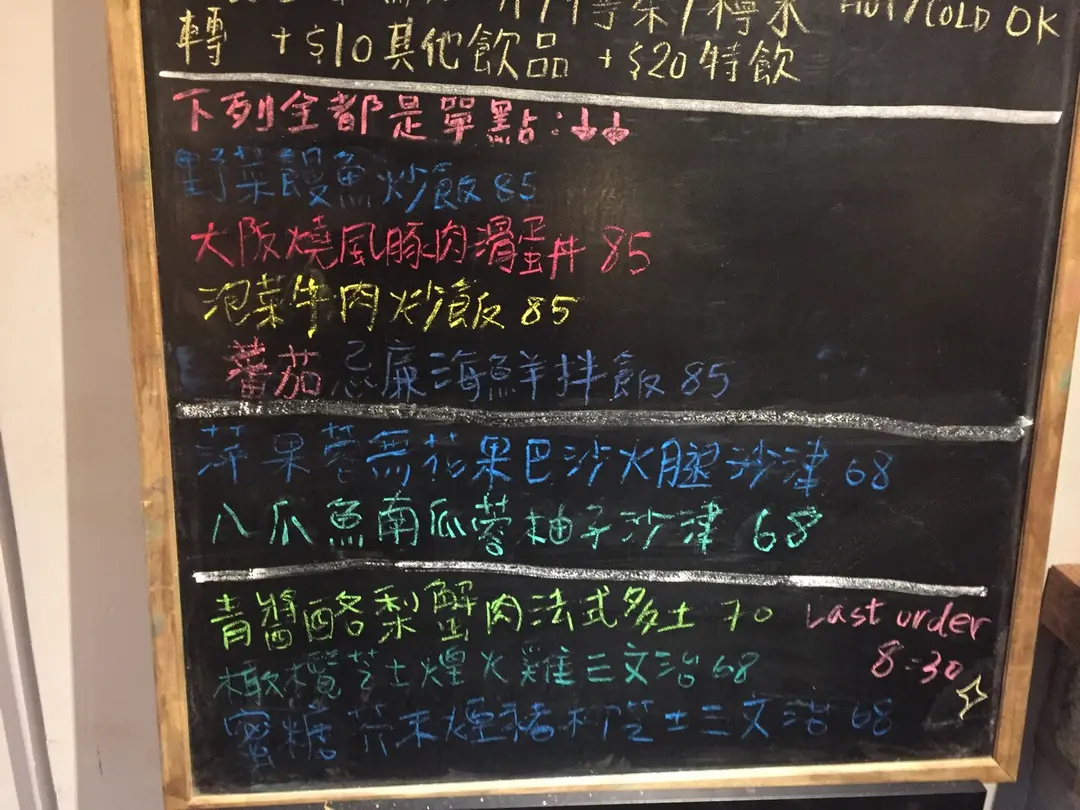 茶/檸茶 HOT/COLD OK
轉 +$10其他飲品 +$20特飲
下列全都是單點:↓↓
野菜饅魚炒飯 85
大阪燒風豚肉滑蛋丼 85
泡菜牛肉炒飯 85
蕃茄忌廉海鮮拌飯 85
萍果蓉無花果巴沙火腿沙津 68
八爪魚南瓜蓉柚子沙津 68
青醬酪梨蟹肉法式多士 70
Last order
8:30
橄欖芝士煙火雞三文治 68
蜜糖芥末煙豬柳芝士三文治 68